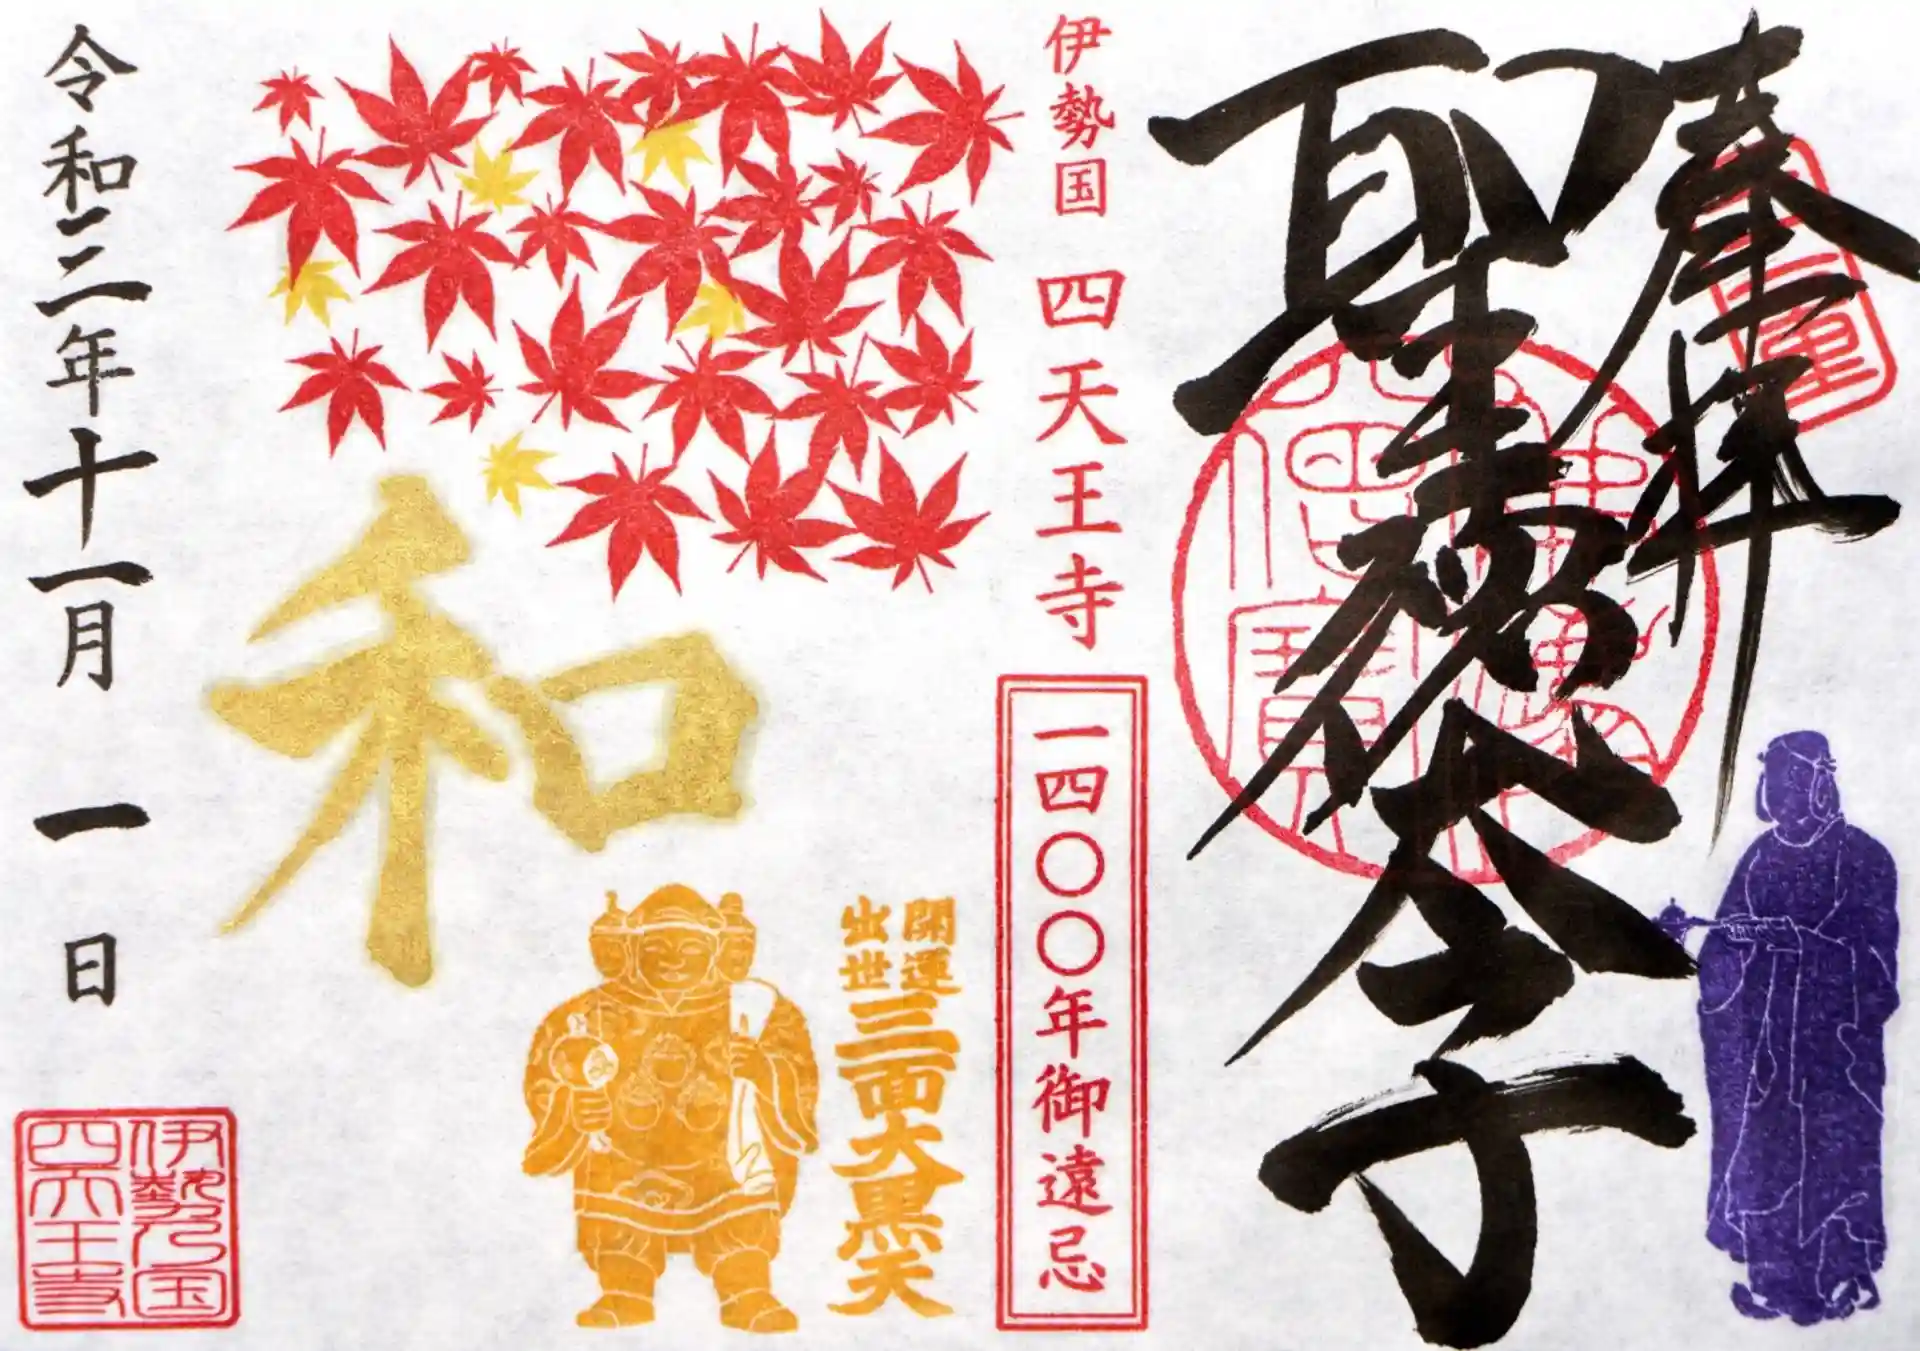 奉拝
聖徳太子
伊勢国 四天王寺
一四〇〇年御遠忌
開運
出世
三面大黒天
和
令和三年十一月一日
伊勢国
四天王寺